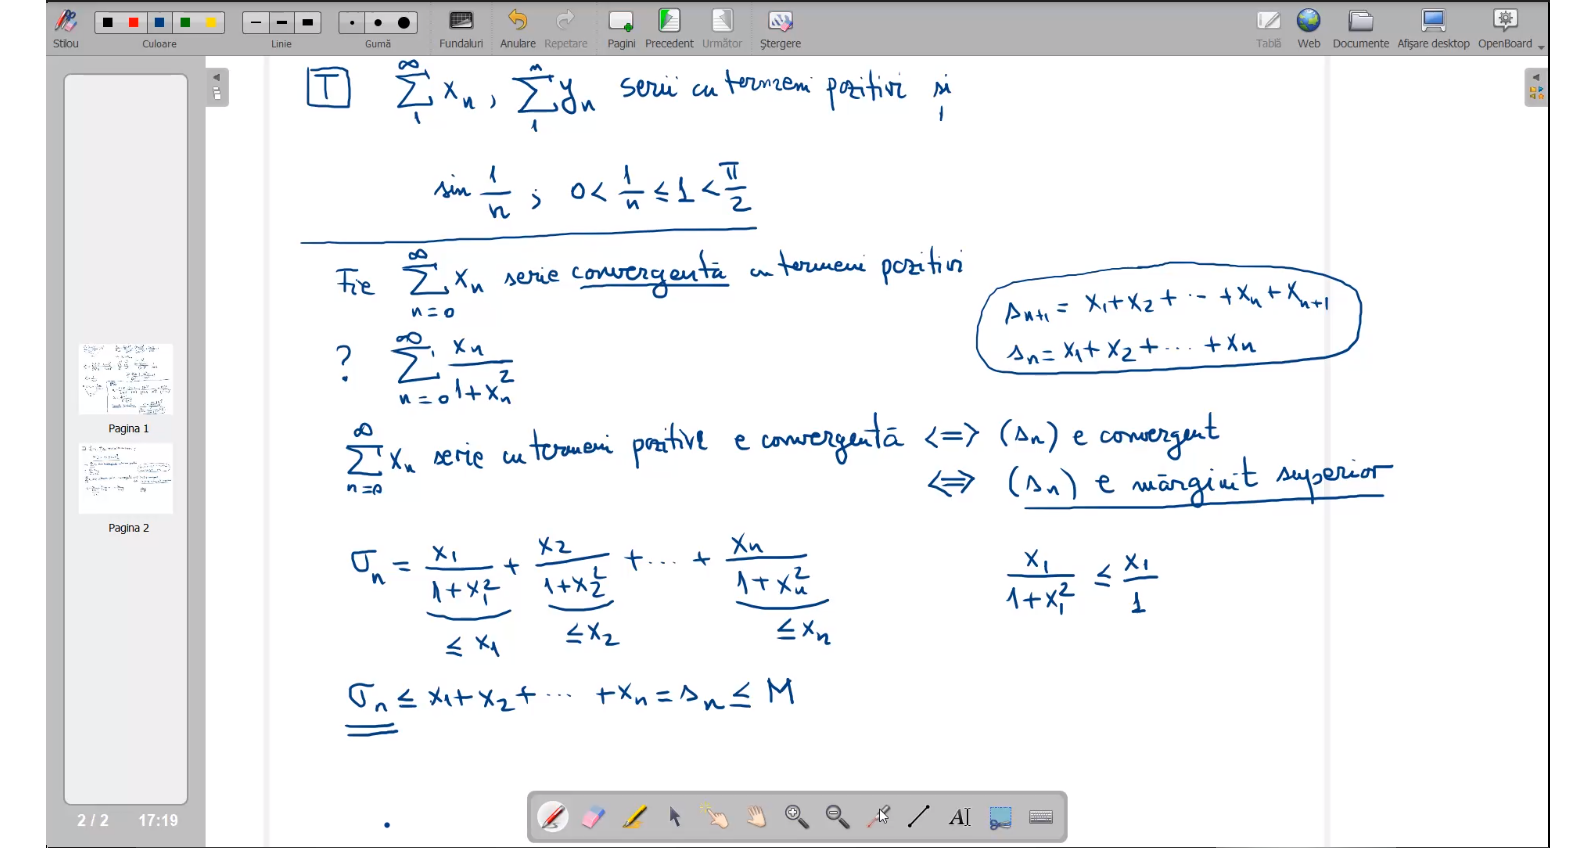 Stilou Culoare Linie Gumă Fundaluri Anulare Repetare Pagini Precedent Următor Ștergere Tablă Web Documente Afișare desktop OpenBoard
T ∑_1^∞ x_n, ∑_1^n y_n serii cu termeni pozitivi și
sin 1/n ; 0 < 1/n ≤ 1 < π/2
Fie ∑_{n=0}^∞ x_n serie convergentă cu termeni pozitivi
s_{n+1} = x_1 + x_2 + ... + x_n + x_{n+1}
s_n = x_1 + x_2 + ... + x_n
? ∑_{n=0}^∞ x_n/(1+x_n^2)
∑_{n=0}^∞ x_n serie cu termeni pozitive e convergentă <=> (s_n) e convergent
<=> (s_n) e mărginit superior
σ_n = x_1/(1+x_1^2) + x_2/(1+x_2^2) + ... + x_n/(1+x_n^2)
≤ x_1 ≤ x_2 ≤ x_n
x_1/(1+x_1^2) ≤ x_1/1
σ_n ≤ x_1 + x_2 + ... + x_n = s_n ≤ M
Pagina 1
Pagina 2
2 / 2 17:19